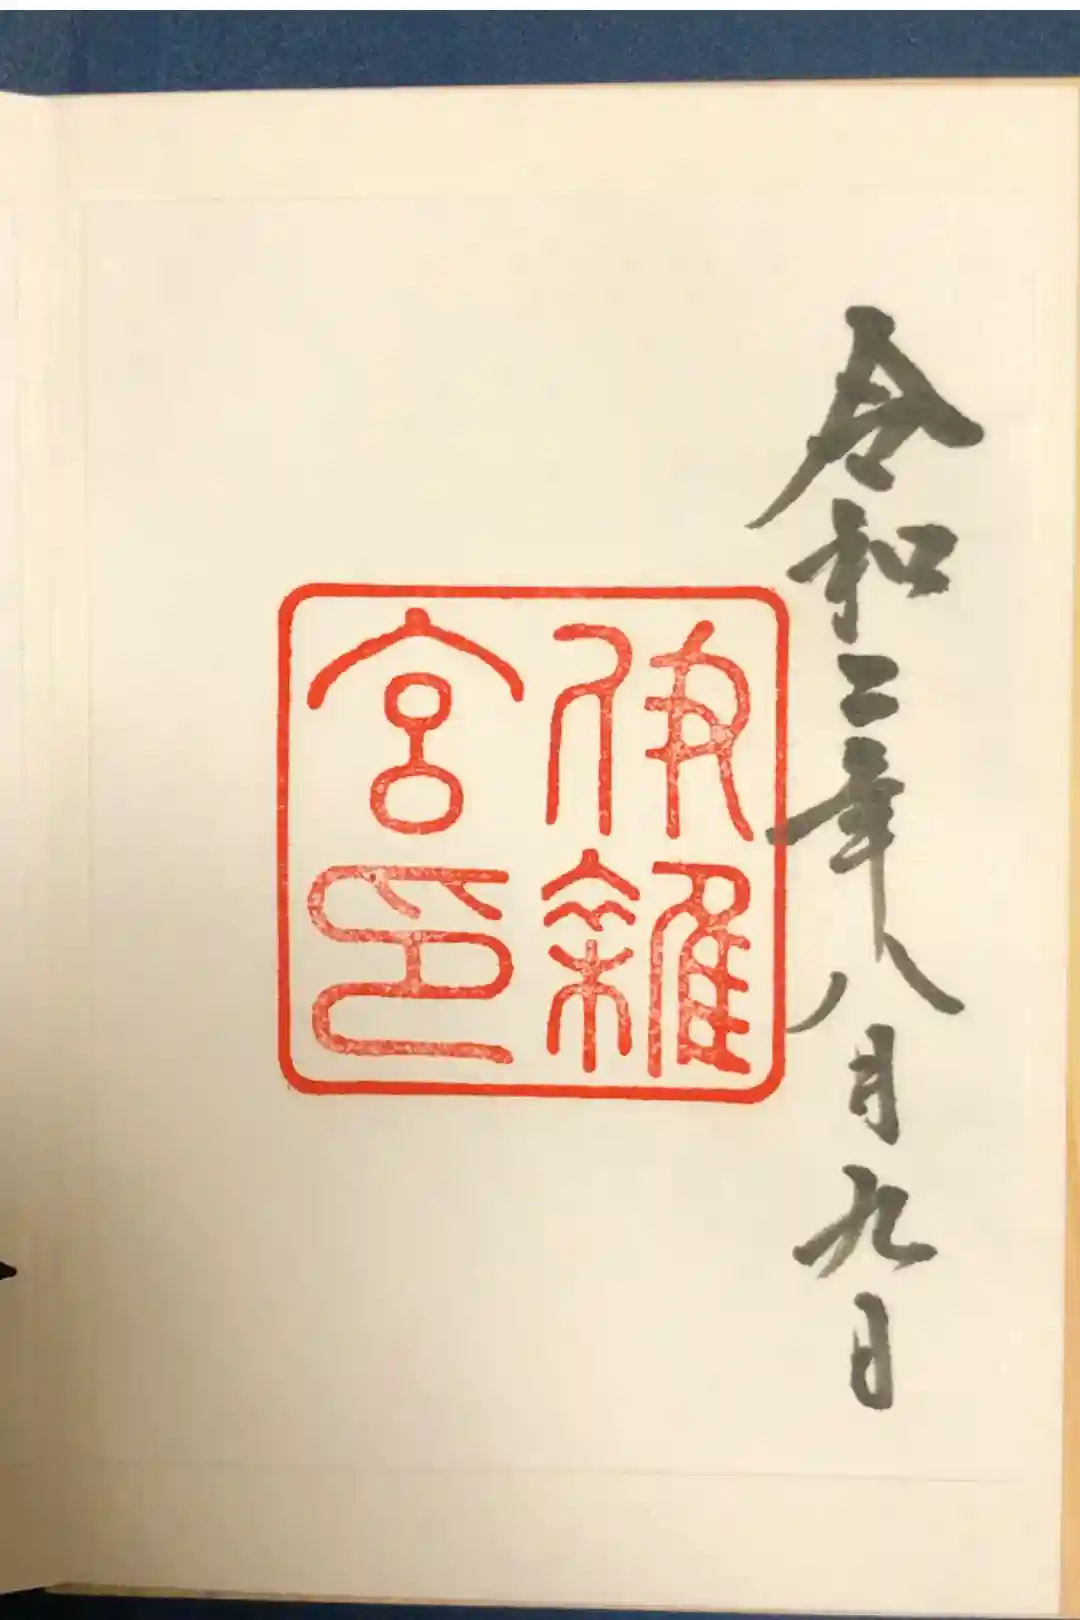 令和二年八月九日
伊雜
宮印